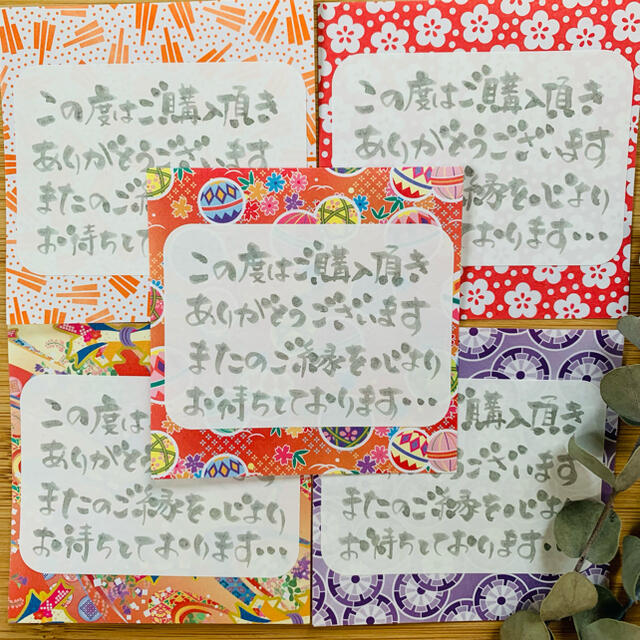 この度はご購入頂き
ありがとうございます
またのご
お待ちして
この度はご購入頂き
ありがとうございます
ご縁を心より
ております…
この度はご購入頂き
ありがとうございます
またのご縁を心より
お待ちしております…
この度は
ありが
またのご縁を心より
お待ちしております…
購入頂き
ございます
またのご縁を心より
お待ちしております…